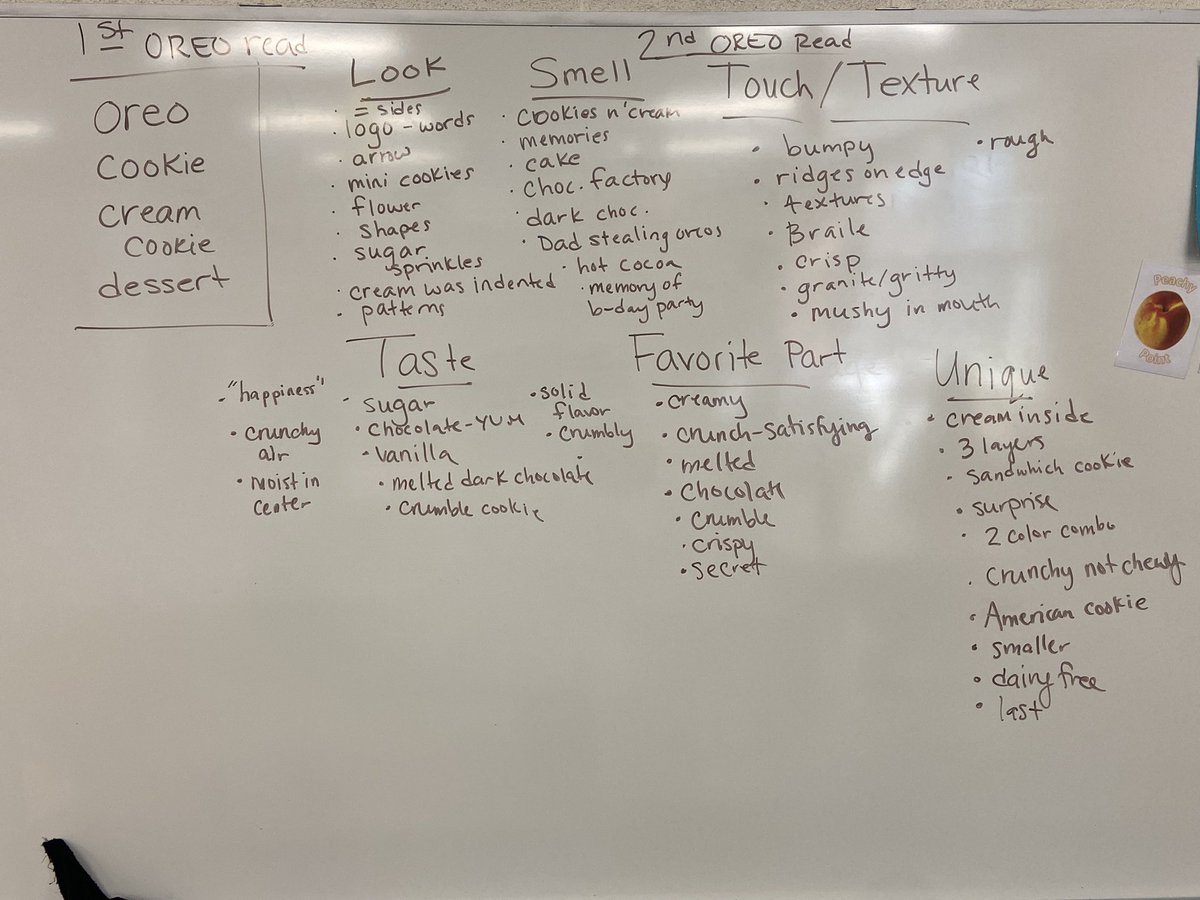 1st OREO read
Oreo
Cookie
cream
cookie
dessert
2nd OREO Read
Look
· = sides
· logo - words
· arrow
· mini cookies
· flower
· shapes
· sugar
sprinkles
· cream was indented
· patterns
Smell
· cookies n'cream
· memories
· cake
· choc. factory
· dark choc.
· Dad stealing oreos
· hot cocoa
· memory of
b-day party
Touch / Texture
· bumpy
· ridges on edge
· textures
· Braile
· crisp
· granite/gritty
· mushy in mouth
· rough
Taste
· "happiness"
· crunchy
air
· Moist in
center
· sugar
· chocolate-YUM
· vanilla
· melted dark chocolate
· crumble cookie
· solid
flavor
· crumbly
Favorite Part
· creamy
· crunch-satisfying
· melted
· chocolate
· crumble
· crispy
· secret
Unique
· cream inside
· 3 layers
· sandwhich cookie
· surprise
· 2 color combo
· crunchy not chewy
· American cookie
· smaller
· dairy free
· last
Peachy
Point